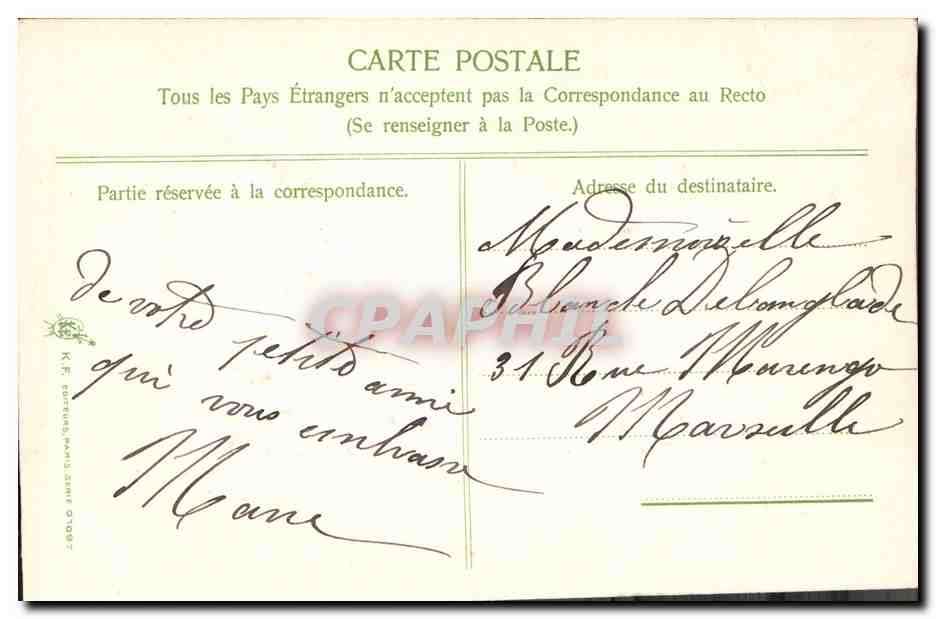 CARTE POSTALE
Tous les Pays Étrangers n'acceptent pas la Correspondance au Recto
(Se renseigner à la Poste.)
Partie réservée à la correspondance.
de votre petite amie
qui vous embrasse
Marie
Adresse du destinataire.
Mademoiselle
Blanche Delanglade
31 Rue Marengo
Marseille
K.F. EDITEURS, PARIS, SERIE
CPAPHIL